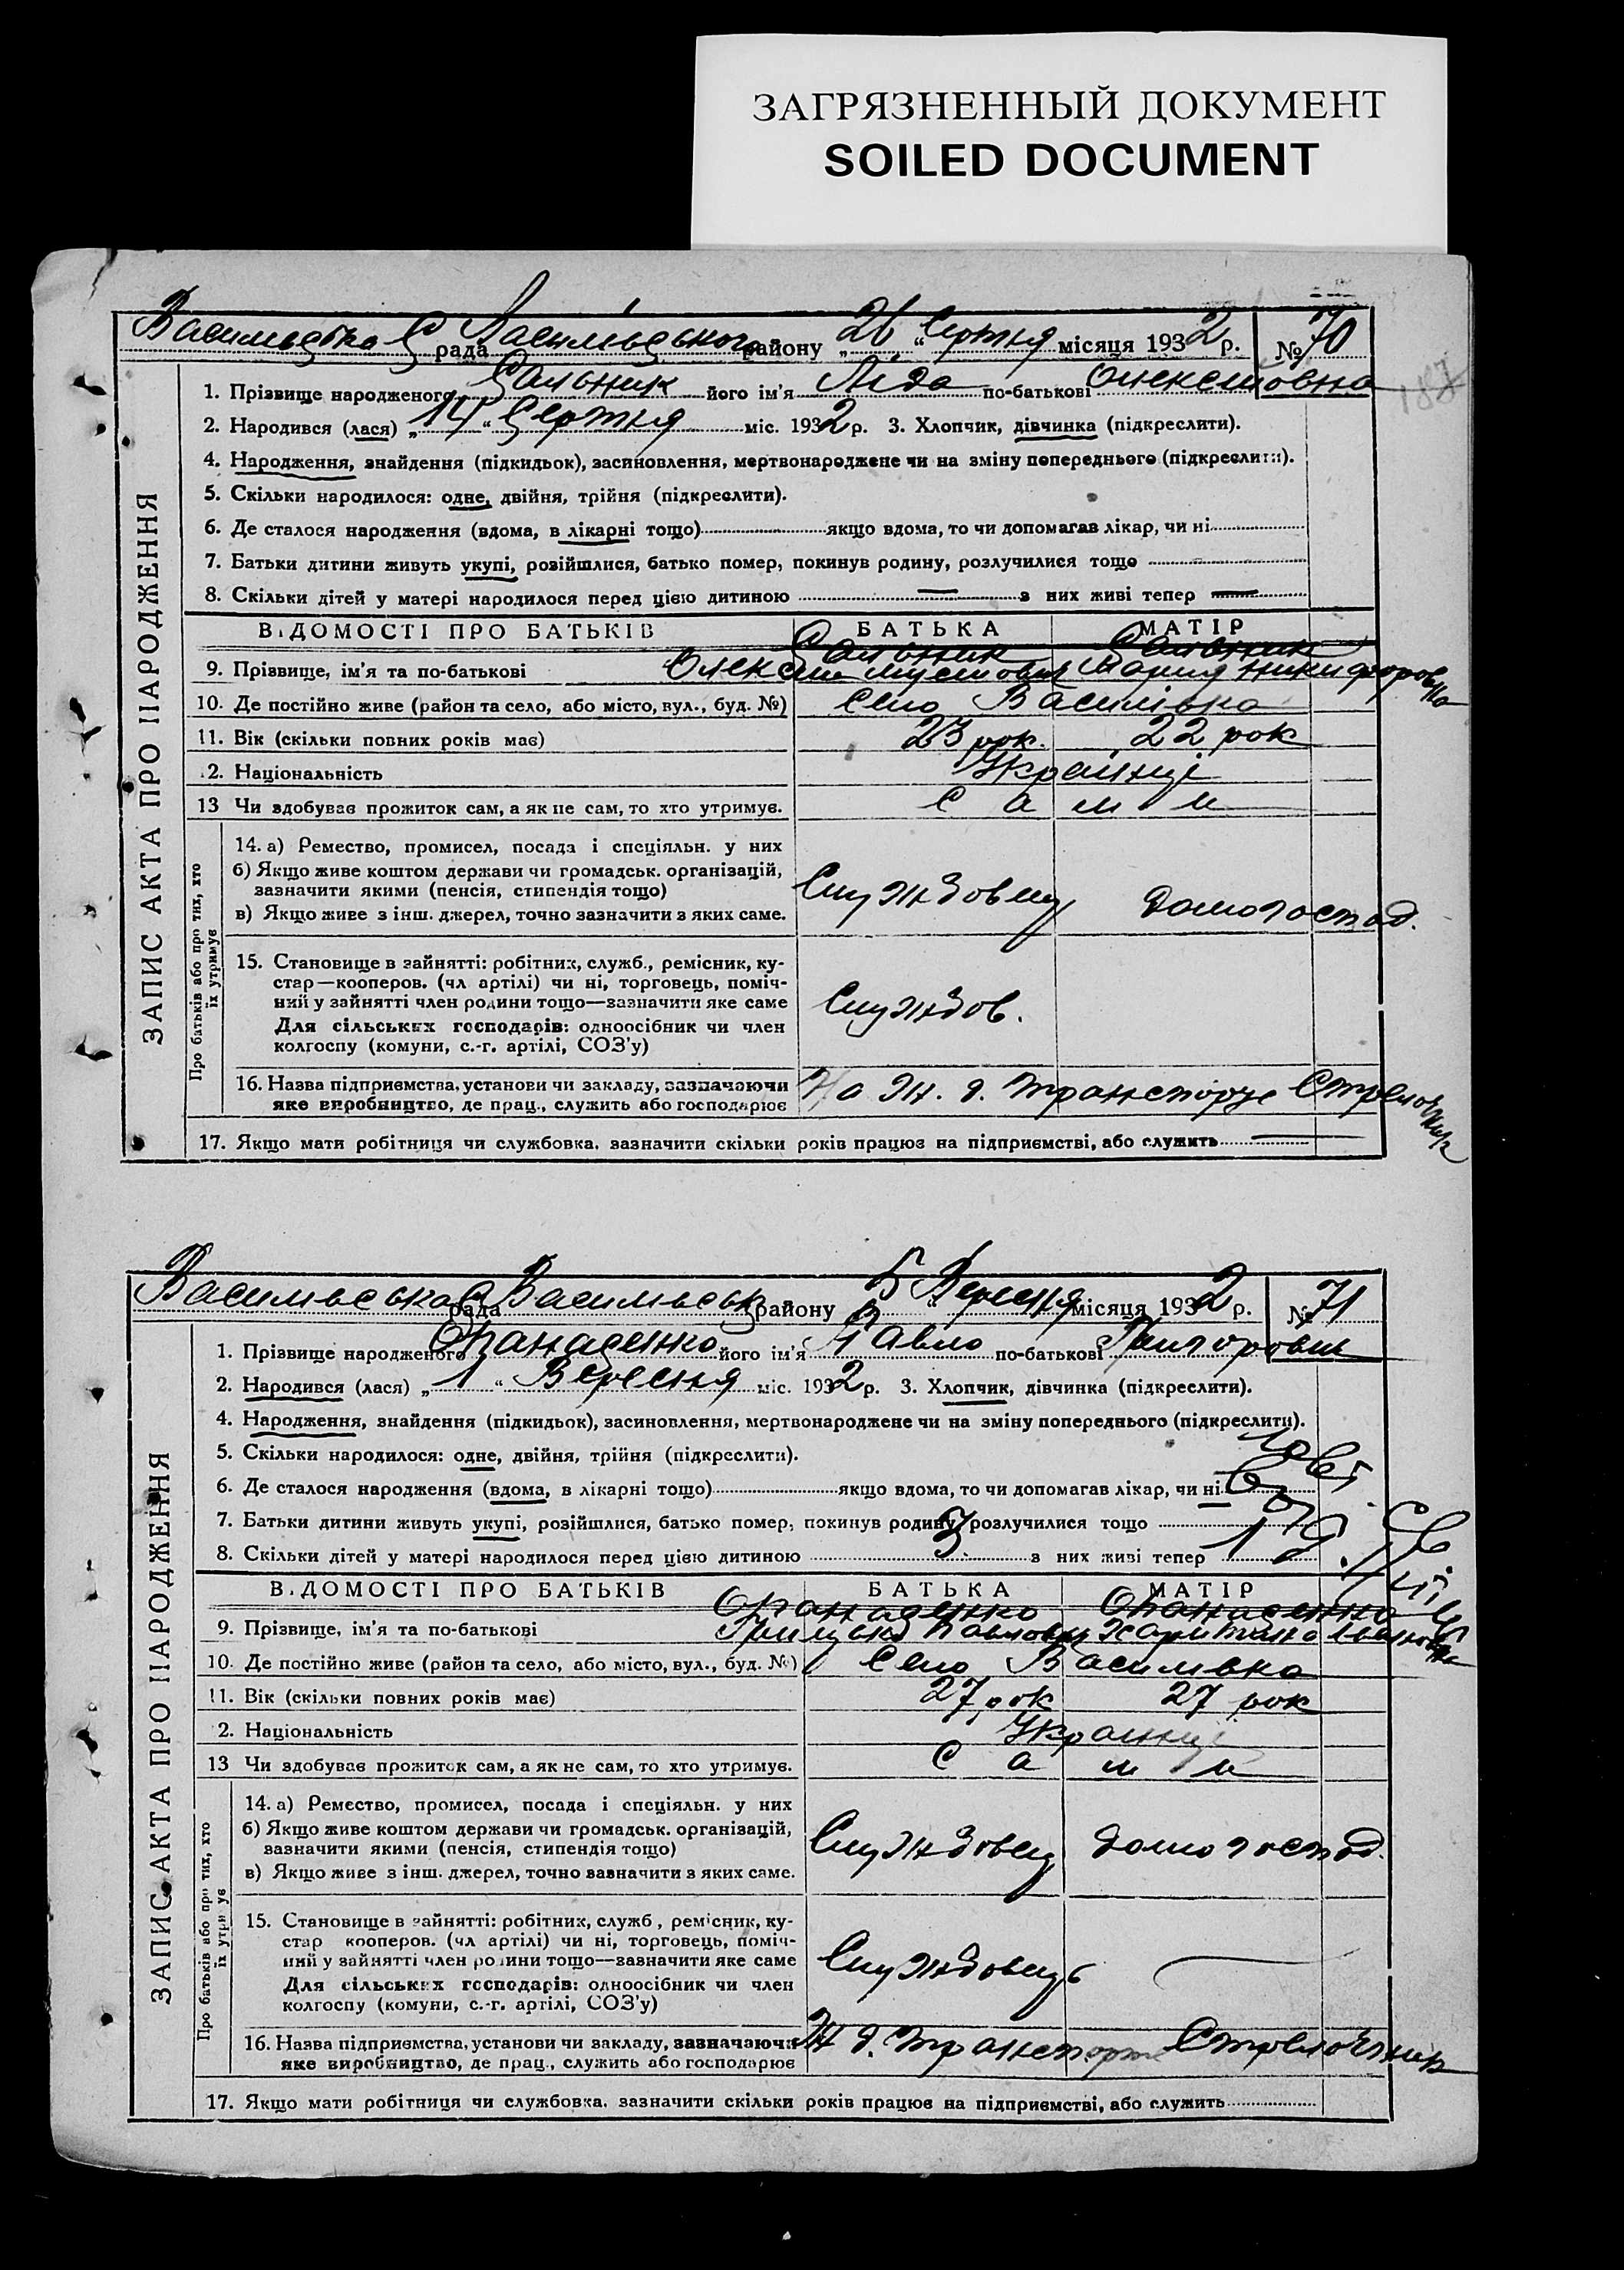 ЗАГРЯЗНЕННЫЙ ДОКУМЕНТ
SOILED DOCUMENT
Васильвська С рада Васильвського району „26“ Серпня місяця 1932 р. № 70
187
1. Прізвище народженого Сальник його ім'я Ліда по-батькові Олексеювна
2. Народився (лася) „14“ Серпня міс. 1932 р. 3. Хлопчик, дівчинка (підкреслити).
4. Народження, знайдення (підкидьок), засиновлення, мертвонароджене чи на зміну попереднього (підкреслити).
5. Скільки народилося: одне, двійня, трійня (підкреслити).
6. Де сталося народження (вдома, в лікарні тощо) якщо вдома, то чи допомагав лікар, чи ні
7. Батьки дитини живуть укупі, розійшлися, батько помер, покинув родину, розлучилися тощо
8. Скільки дітей у матері народилося перед цією дитиною — з них живі тепер —
ВІДОМОСТІ ПРО БАТЬКІВ БАТЬКА МАТІР
Сальник Сальник
9. Прізвище, ім'я та по-батькові Олексій Мария Никифоровна
10. Де постійно живе (район та село, або місто, вул., буд. №) Село Василівка
11. Вік (скільки повних років має) 23 рок. 22 рок
12. Національність Українці
13 Чи здобуває прожиток сам, а як не сам, то хто утримує. Сами
14. а) Ремество, промисел, посада і спеціяльн. у них
б) Якщо живе коштом держави чи громадськ. організацій,
зазначити якими (пенсія, стипендія тощо) Службовець домогоспод.
в) Якщо живе з інш. джерел, точно зазначити з яких саме.
15. Становище в зайнятті: робітник, служб., ремісник, ку-
стар—кооперов. (чл артілі) чи ні, торговець, поміч-
ний у зайнятті член родини тощо—зазначити яке саме Службов.
Для сільських господарів: одноосібник чи член
колгоспу (комуни, с.-г. артілі, СОЗ'у)
16. Назва підприємства, установи чи закладу, зазначаючи На Ж. д. транспорте Стрелочник
яке виробництво, де прац., служить або господарює
17. Якщо мати робітниця чи службовка, зазначити скільки років працює на підприємстві, або служить —
ЗАПИС АКТА ПРО НАРОДЖЕННЯ
Про батьків або про тих, хто
їх утримує
Васильвська С рада Васильвськ району „5“ Вересня місяця 1932 р. № 71
1. Прізвище народженого Опанасенко його ім'я Павло по-батькові Григорович
2. Народився (лася) „1“ Вересня міс. 1932 р. 3. Хлопчик, дівчинка (підкреслити).
4. Народження, знайдення (підкидьок), засиновлення, мертвонароджене чи на зміну попереднього (підкреслити).
5. Скільки народилося: одне, двійня, трійня (підкреслити).
6. Де сталося народження (вдома, в лікарні тощо) якщо вдома, то чи допомагав лікар, чи ні
7. Батьки дитини живуть укупі, розійшлися, батько помер, покинув родину, розлучилися тощо
8. Скільки дітей у матері народилося перед цією дитиною 3 з них живі тепер 1
ВІДОМОСТІ ПРО БАТЬКІВ БАТЬКА МАТІР
Опанасенко Опанасенко
9. Прізвище, ім'я та по-батькові Грицько Павлович Харитина Ивановна
10. Де постійно живе (район та село, або місто, вул., буд. №) Село Василівка
11. Вік (скільки повних років має) 27 рок 27 рок
12. Національність Українці
13 Чи здобуває прожиток сам, а як не сам, то хто утримує. Сами
14. а) Ремество, промисел, посада і спеціяльн. у них
б) Якщо живе коштом держави чи громадськ. організацій,
зазначити якими (пенсія, стипендія тощо) Службовець домогоспод.
в) Якщо живе з інш. джерел, точно зазначити з яких саме.
15. Становище в зайнятті: робітник, служб., ремісник, ку-
стар кооперов. (чл артілі) чи ні, торговець, поміч-
ний у зайнятті член родини тощо—зазначити яке саме Службовець —
Для сільських господарів: одноосібник чи член
колгоспу (комуни, с.-г. артілі, СОЗ'у)
16. Назва підприємства, установи чи закладу, зазначаючи Ж д. транспорте Стрелочник
яке виробництво, де прац., служить або господарює
17. Якщо мати робітниця чи службовка, зазначити скільки років працює на підприємстві, або служить
ЗАПИС АКТА ПРО НАРОДЖЕННЯ
Про батьків або про тих, хто
їх утримує